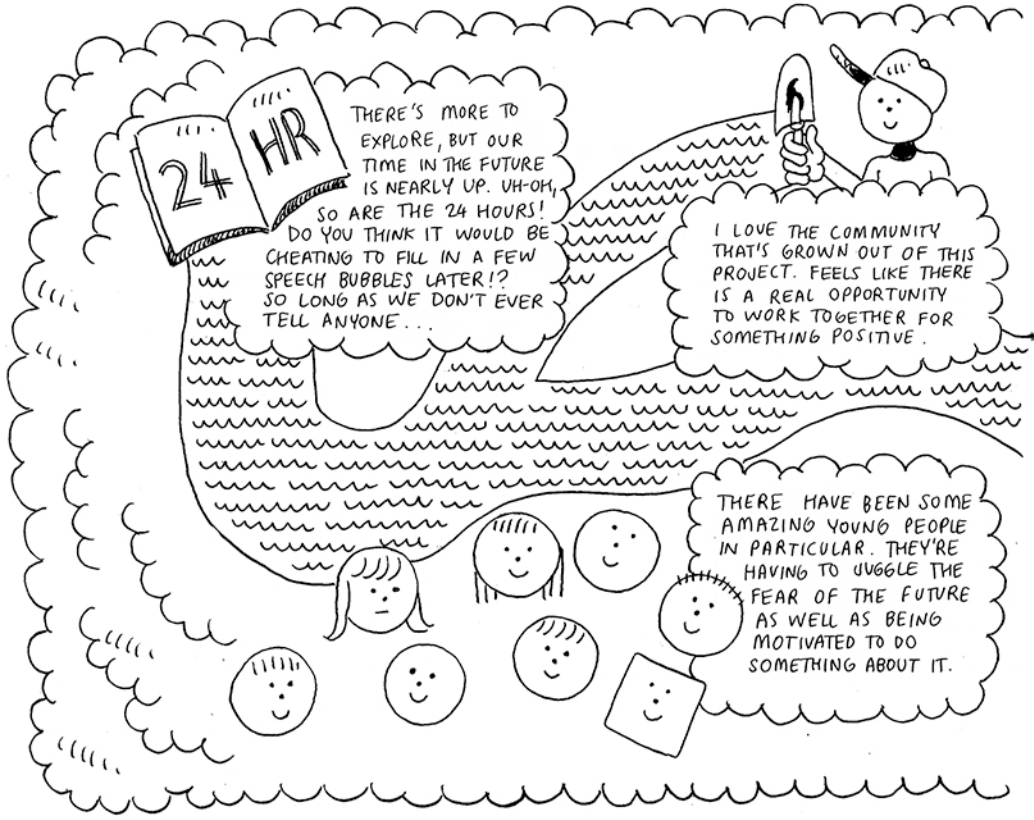 24 HR
THERE'S MORE TO
EXPLORE, BUT OUR
TIME IN THE FUTURE
IS NEARLY UP. UH-OH,
SO ARE THE 24 HOURS!
DO YOU THINK IT WOULD BE
CHEATING TO FILL IN A FEW
SPEECH BUBBLES LATER!?
SO LONG AS WE DON'T EVER
TELL ANYONE...
I LOVE THE COMMUNITY
THAT'S GROWN OUT OF THIS
PROJECT. FEELS LIKE THERE
IS A REAL OPPORTUNITY
TO WORK TOGETHER FOR
SOMETHING POSITIVE.
THERE HAVE BEEN SOME
AMAZING YOUNG PEOPLE
IN PARTICULAR. THEY'RE
HAVING TO JUGGLE THE
FEAR OF THE FUTURE
AS WELL AS BEING
MOTIVATED TO DO
SOMETHING ABOUT IT.